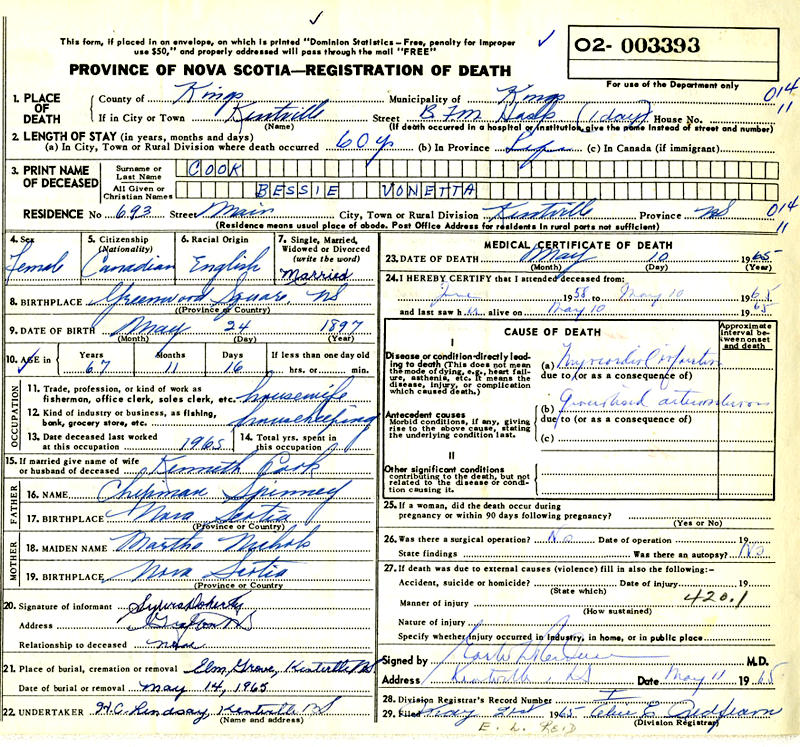 This form, if placed in an envelope, on which is printed "Dominion Statistics – Free, penalty for improper
use $50," and properly addressed will pass through the mail "FREE"
02- 003393
PROVINCE OF NOVA SCOTIA—REGISTRATION OF DEATH
For use of the Department only
014
11
1. PLACE OF DEATH
County of Kings Municipality of Kings
If in City or Town Kentville Street B F M Hosp (1 day) House No.
(Name) (If death occurred in a hospital or institution, give the name instead of street and number)
2. LENGTH OF STAY (in years, months and days)
(a) In City, Town or Rural Division where death occurred 60 y (b) In Province Life (c) In Canada (if immigrant)
3. PRINT NAME OF DECEASED
Surname or Last Name COOK
All Given or Christian Names BESSIE VONETTA
RESIDENCE No 693 Street Main City, Town or Rural Division Kentville Province NS 014
11
(Residence means usual place of abode. Post Office Address for residents in rural parts not sufficient)
4. Sex Female
5. Citizenship (Nationality) Canadian
6. Racial Origin English
7. Single, Married, Widowed or Divorced (write the word) Married
8. BIRTHPLACE Greenwood Square, NS
(Province or Country)
9. DATE OF BIRTH May 24 1897
(Month) (Day) (Year)
10. AGE in Years 67 Months 11 Days 16 If less than one day old hrs. or min.
OCCUPATION
11. Trade, profession, or kind of work as fisherman, office clerk, sales clerk, etc. housewife
12. Kind of industry or business, as fishing, bank, grocery store, etc. housekeeping
13. Date deceased last worked at this occupation 1965
14. Total yrs. spent in this occupation
15. If married give name of wife or husband of deceased Kenneth Cook
FATHER
16. NAME Chipman Spinney
17. BIRTHPLACE Nova Scotia
(Province or Country)
MOTHER
18. MAIDEN NAME Martha Nichols
19. BIRTHPLACE Nova Scotia
(Province or Country)
20. Signature of informant Doherty
Address Grafton NS
Relationship to deceased none
21. Place of burial, cremation or removal Elm Grove, Kentville NS
Date of burial or removal May 14, 1965
22. UNDERTAKER H.C. Lindsay, Kentville NS
(Name and address)
MEDICAL CERTIFICATE OF DEATH
23. DATE OF DEATH May 10 1965
(Month) (Day) (Year)
24. I HEREBY CERTIFY that I attended deceased from:
June 1958 to May 10 1965
and last saw h er alive on May 10 1965
CAUSE OF DEATH
Approximate interval between onset and death
I
Disease or condition directly leading to death (This does not mean the mode of dying, e.g., heart failure, asthenia, etc. It means the disease, injury, or complication which caused death.)
(a) Myocardial infarction
due to (or as a consequence of)
Antecedent causes
Morbid conditions, if any, giving rise to the above cause, stating the underlying condition last.
(b) Generalised arteriosclerosis
due to (or as a consequence of)
(c)
II
Other significant conditions contributing to the death, but not related to the disease or condition causing it.
25. If a woman, did the death occur during pregnancy or within 90 days following pregnancy?
(Yes or No)
26. Was there a surgical operation? No Date of operation 19
State findings Was there an autopsy? No
27. If death was due to external causes (violence) fill in also the following:–
Accident, suicide or homicide? Date of injury 19
(State which)
Manner of injury 420.1
(How sustained)
Nature of injury
Specify whether injury occurred in industry, in home, or in public place
Signed by M.D.
Address Kentville, NS Date May 11 1965
28. Division Registrar's Record Number
29. Filed May 21st 1965 E.
(Division Registrar)
E. L. REID